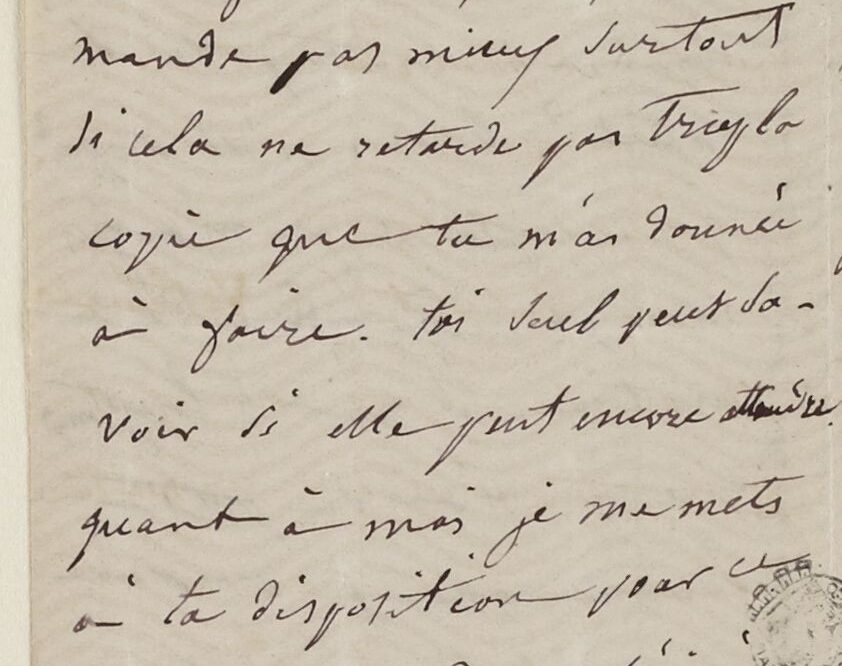 mande pas mieux surtout
si cela ne retarde pas trop la
copie que tu m'as donnée
à faire. toi seul peut sa-
voir si elle peut encore attendre.
quant à moi je me mets
à ta disposition pour ce